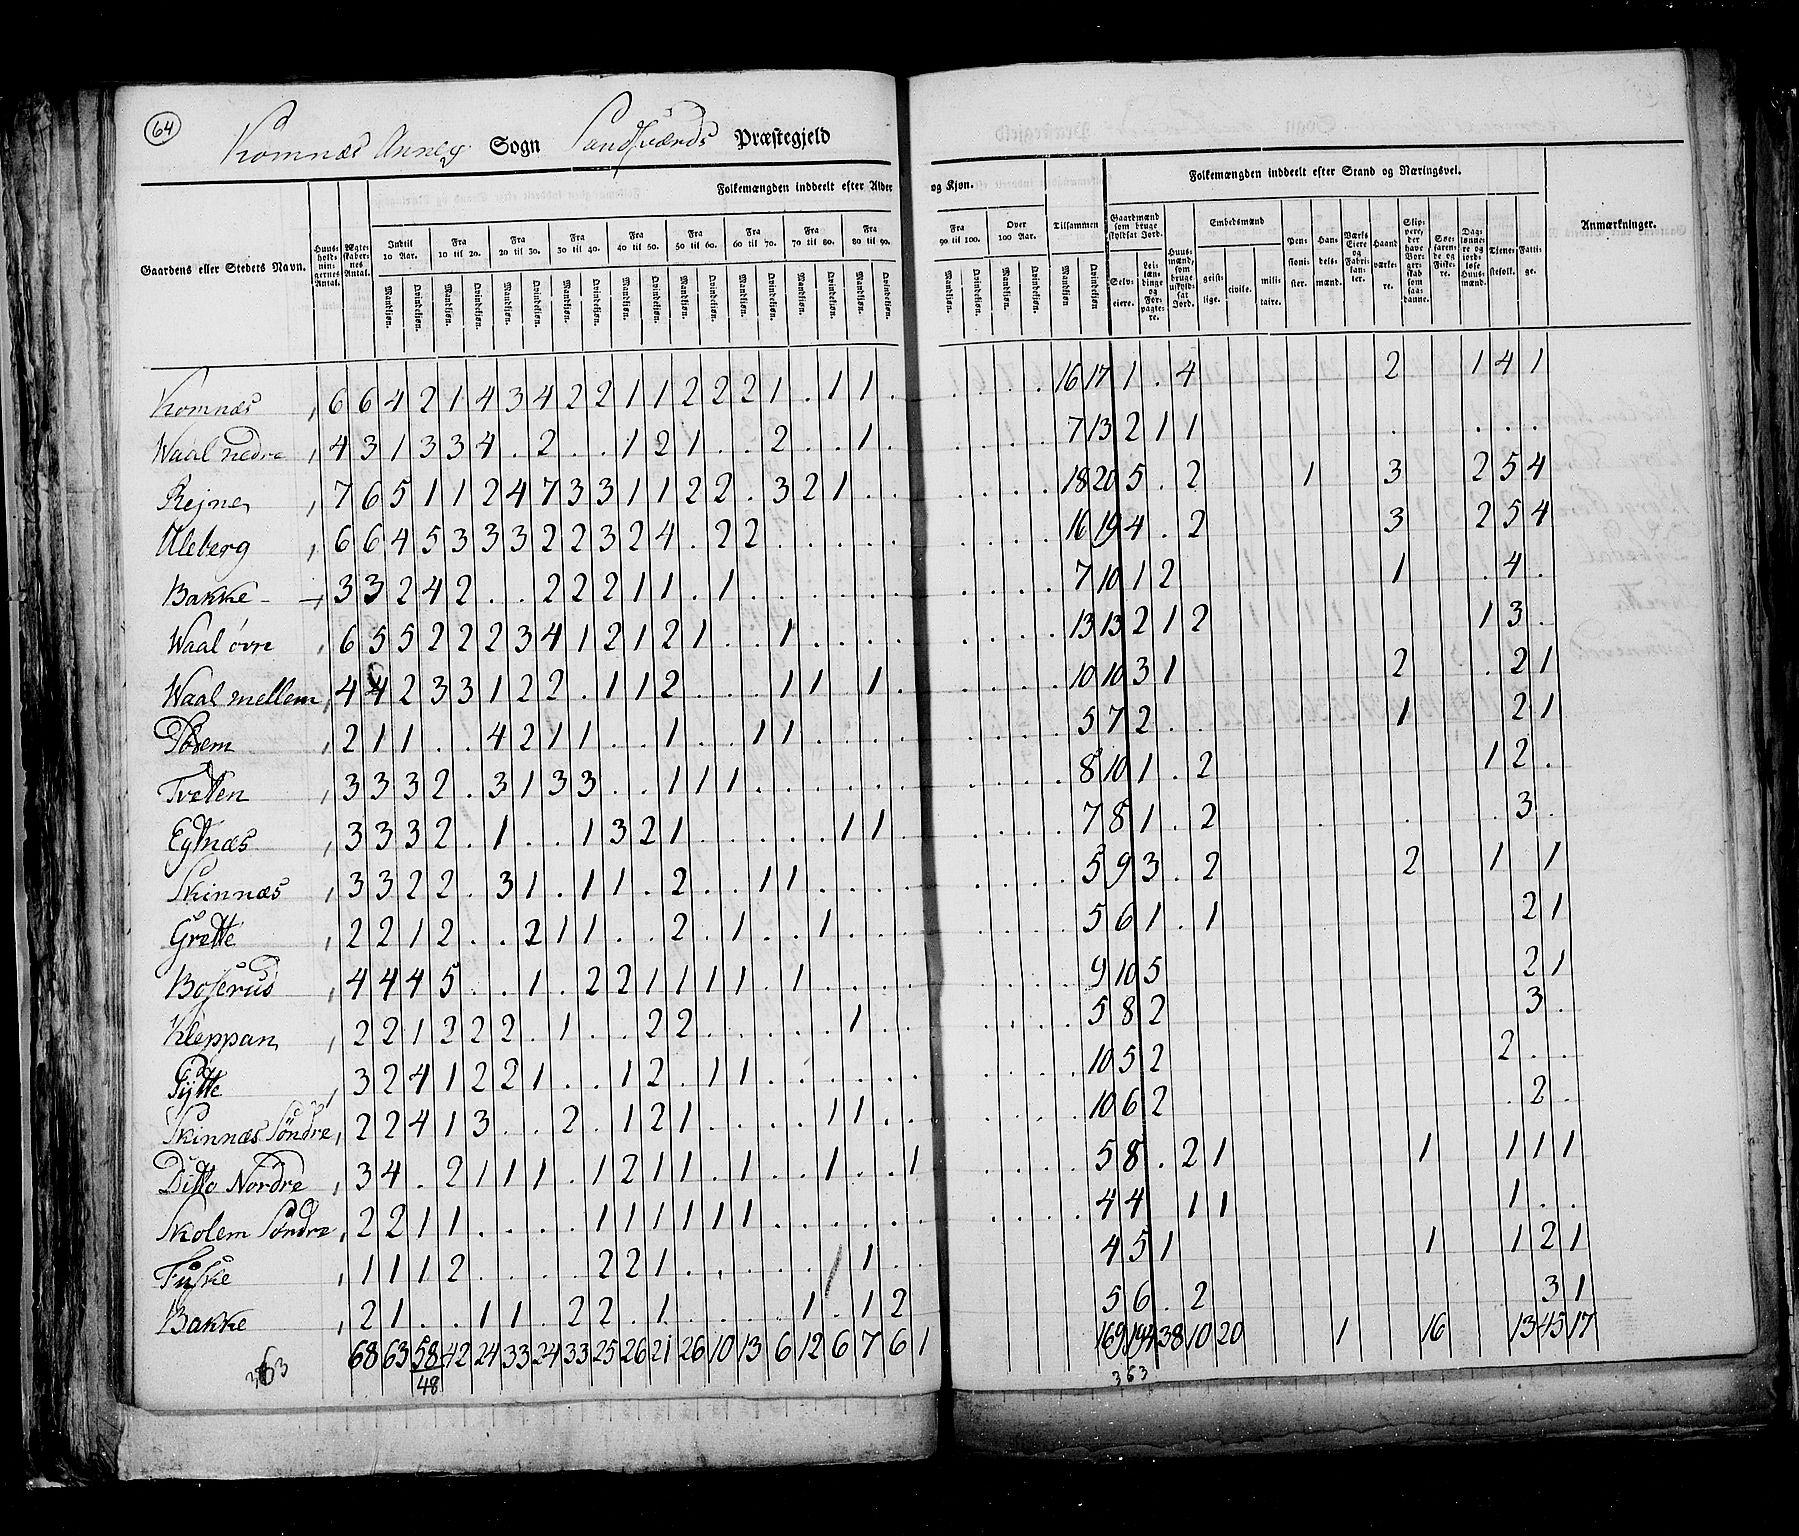 64
Komnæs Annex Sogn Sandsværds Præstegjeld
Gaardens eller Stedets Navn.
Huus-holdningernes Antal.
Ægte-skabernes Antal.
Folkemængden inddeelt efter Alder og Kjøn.
Indtil 10 Aar. Fra 10 til 20. Fra 20 til 30. Fra 30 til 40. Fra 40 til 50. Fra 50 til 60. Fra 60 til 70. Fra 70 til 80. Fra 80 til 90. Fra 90 til 100. Over 100 Aar. Tilsammen
Mandkjøn. Qvindekjøn.
Folkemængden inddeelt efter Stand og Næringsvei.
Gaardmænd som bruge skyldsat Jord.
Selv-eiere. Lei-lændinge og For-pagtere.
Huusmænd, som bruge uskyldsat Jord.
Embedsmænd
geistlige. civile. militaire.
Pensionister. Handelsmænd. Værks Eiere og Fabrikanter. Haandværkere. Slippere, der have Borgerskab som saadanne. Søefarende og Fiskere. Daglønnere og jordløse Huusmænd. Tjenestefolk. Fattige.
Anmærkninger.
Komnæs , 6 6 4 2 1 4 3 4 2 2 1 1 2 2 2 1 . 1 1 . . . . . 16 17 1 . 4 2 1 4 1
Waal nedre , 4 3 1 3 3 4 . 2 . . 1 2 1 . . 2 . . 1 . . . . . 7 13 2 1 1 . . . .
Rejne , 7 6 5 1 1 2 4 7 3 3 1 1 2 2 . 3 2 1 . . . . . . 18 20 5 . 2 1 3 2 5 4
Uleberg , 6 6 4 5 3 3 3 2 2 3 2 4 . 2 2 . . . . . . . . . 16 19 4 . 2 3 2 5 4
Bakke - , 3 3 2 4 2 . . 2 2 2 1 1 . 1 . . . . . . . . . . 7 10 1 2 1 . 4 .
Waal øvre , 6 5 5 2 2 2 3 4 1 2 1 2 1 . . 1 . . . . . . . . 13 13 2 1 2 1 3 .
Waal mellem , 4 4 2 3 3 1 2 2 . 1 1 2 . . . 1 1 . 1 . . . . . 10 10 3 1 2 2 1
, 2 1 1 . . 4 2 1 1 . . 1 . . 1 1 . . . . . . . . 5 7 2 . 1 2 1
Tvetten , 3 3 3 2 . 3 1 3 3 . . 1 1 1 . . . . . . . . . . 8 10 1 . 2 1 2 .
Egtnæs , 3 3 3 2 . 1 . . 1 3 2 1 . . . . . 1 1 . . . . . 7 8 1 . 2 . 3 .
Skinnæs , 3 3 2 2 . 3 1 . 1 1 . 2 . . 1 1 . . . . . . . . 5 9 3 . 2 2 1 1
Grette , 2 2 1 2 . . 2 1 1 . . 2 . 1 . . 1 . . . . . . . 5 6 1 . 1 2 1
Boserud , 4 4 4 5 . . 1 . 2 2 1 1 1 1 . 1 . . . . . . . . 9 10 5 2 1
Kleppan , 2 2 1 2 2 2 . 1 . . 2 2 . . . . . 1 . . . . . . 5 8 2 3 .
, 3 2 4 1 2 2 1 . . 1 2 . 1 1 . . . . . . . . . . 10 5 2 2 . .
Skinnæs Søndre , 2 2 4 1 3 . . 2 . 1 2 1 . . . . 1 1 . . . . . . 10 6 2 . 2 .
Ditto Nordre , 3 4 . 2 1 1 1 . 1 2 1 1 . 1 . . 1 . . 1 . . . . 5 8 . 2 1 1 1 1 1
Skolem Søndre , 2 2 1 1 . . . . 1 1 1 1 1 1 . . . . . . . . . . 4 4 1 1 1 . .
, 1 1 1 2 . . . . 2 2 1 . . . . . . 1 . . 4 5 1 1 1 2 1
Bakke , 2 1 . . 1 1 . 2 2 . 1 . . . . 1 . 1 2 5 6 . 2 3 1
68 63 58 42 24 33 24 33 25 26 21 26 10 13 6 12 6 7 6 1 169 194 38 10 20 1 16 13 45 17
363 48 363